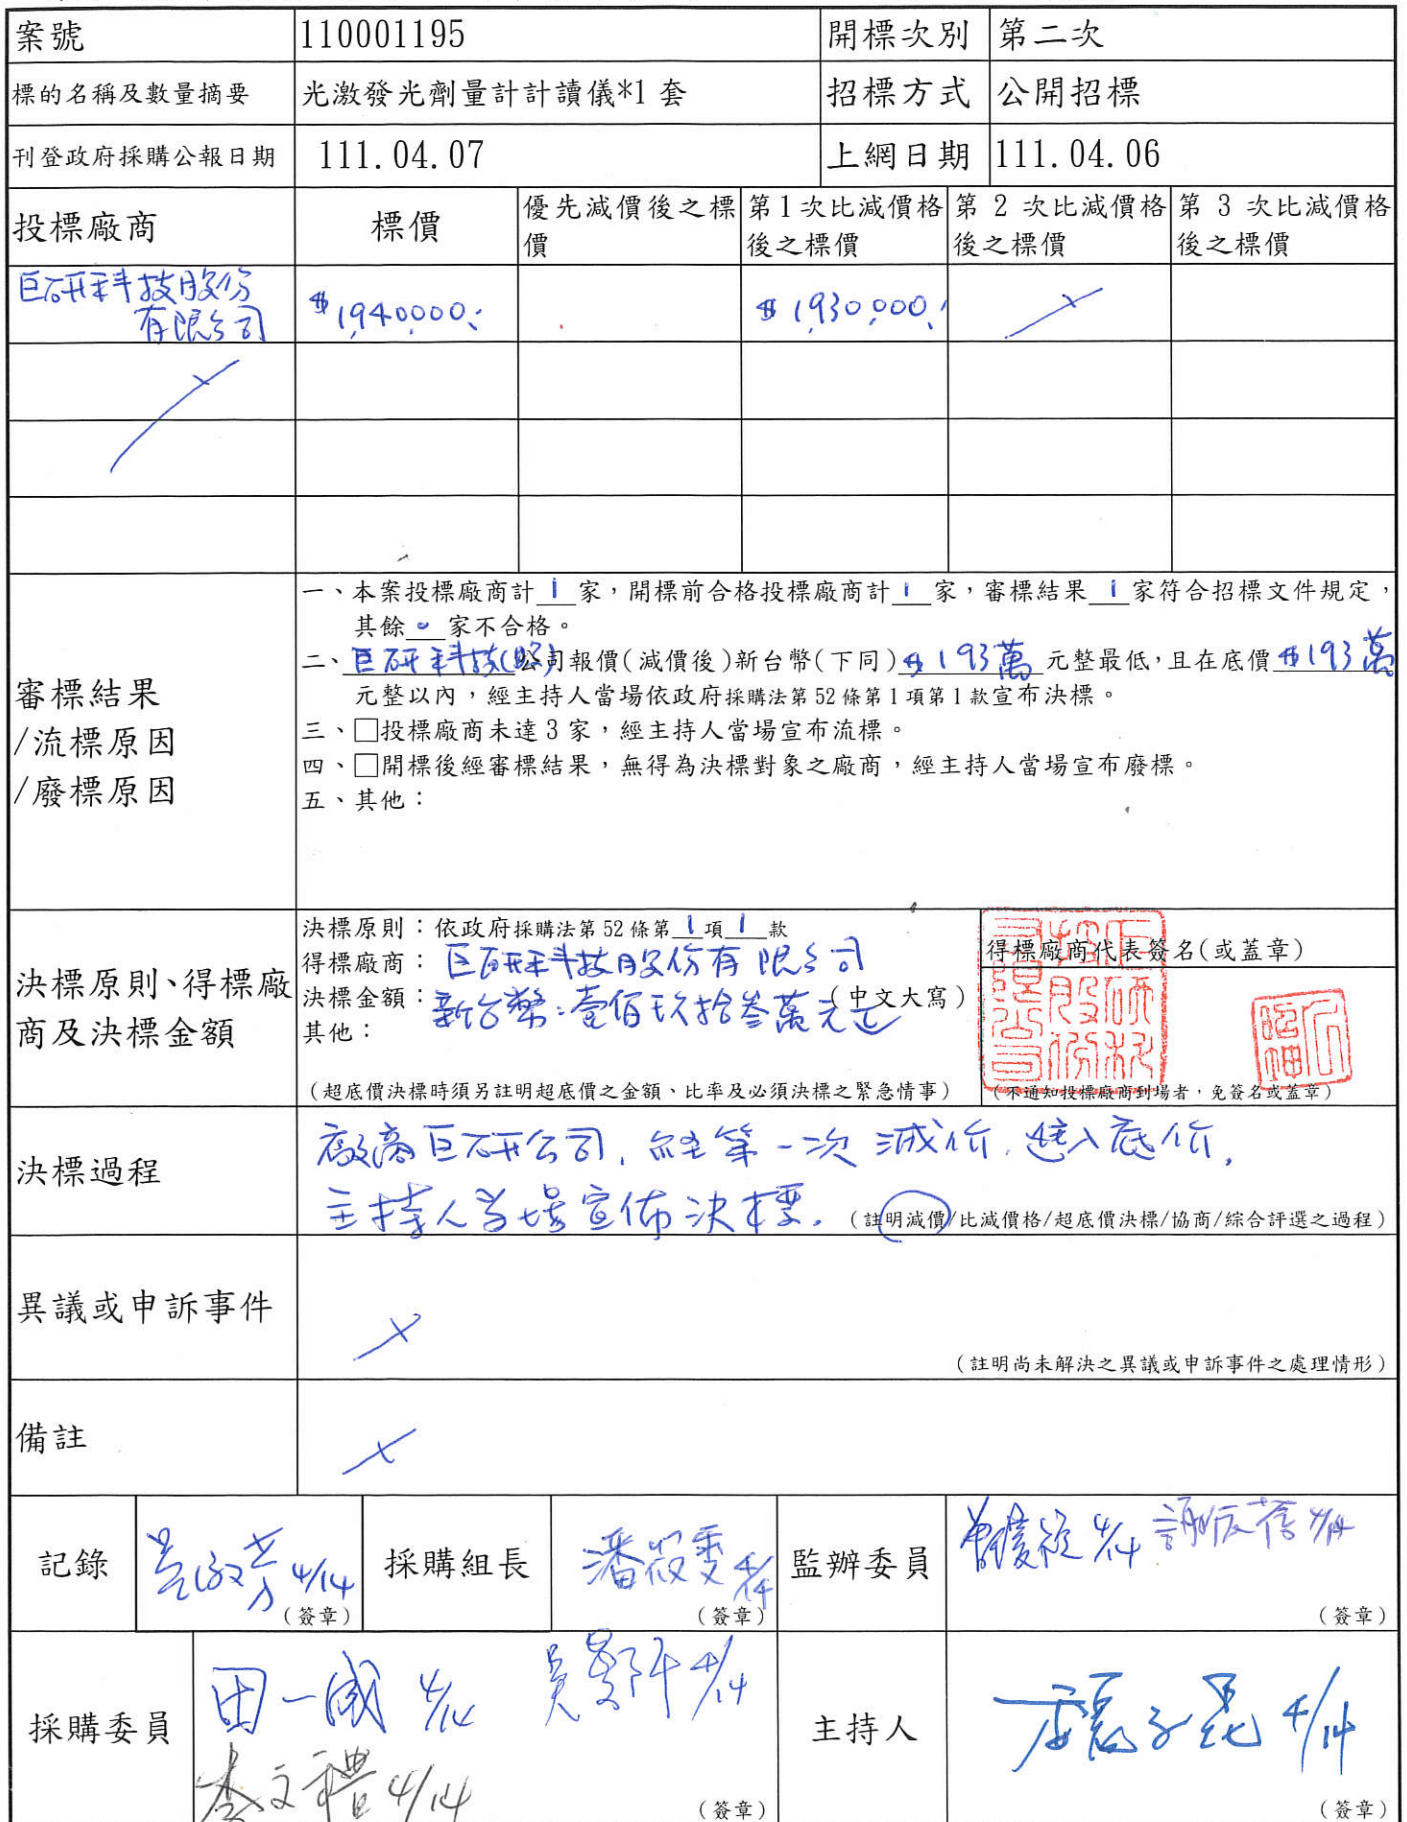 案號 110001195 開標次別 第二次
標的名稱及數量摘要 光激發光劑量計計讀儀*1 套 招標方式 公開招標
刊登政府採購公報日期 111.04.07 上網日期 111.04.06
投標廠商 標價 優先減價後之標價 第1次比減價格後之標價 第 2 次比減價格後之標價 第 3 次比減價格後之標價
巨研科技股份有限公司 $1,940,000.- $1,930,000.-
審標結果
/流標原因
/廢標原因
一、本案投標廠商計 1 家，開標前合格投標廠商計 1 家，審標結果 1 家符合招標文件規定，
其餘 0 家不合格。
二、巨研科技(股)公司報價(減價後)新台幣(下同)$193萬 元整最低，且在底價 $193萬
元整以內，經主持人當場依政府採購法第52條第1項第1款宣布決標。
三、□投標廠商未達3家，經主持人當場宣布流標。
四、□開標後經審標結果，無得為決標對象之廠商，經主持人當場宣布廢標。
五、其他：
決標原則、得標廠商及決標金額
決標原則：依政府採購法第52條第 1 項 1 款
得標廠商：巨研科技股份有限公司
決標金額：新台幣：壹佰玖拾叁萬元正 (中文大寫)
其他：
(超底價決標時須另註明超底價之金額、比率及必須決標之緊急情事)
得標廠商代表簽名(或蓋章)
巨研科技股份有限公司
(不通知投標廠商到場者，免簽名或蓋章)
決標過程
廠商巨研公司，經第一次減价，進入底价，
主持人当場宣佈決標。
(註明減價/比減價格/超底價決標/協商/綜合評選之過程)
異議或申訴事件
(註明尚未解決之異議或申訴事件之處理情形)
備註
記錄 4/14 (簽章) 採購組長 潘筱雯 4/14 (簽章) 監辦委員 4/14 4/14 (簽章)
採購委員 田一成 4/14 4/14 李文禮 4/14 (簽章) 主持人 4/14 (簽章)